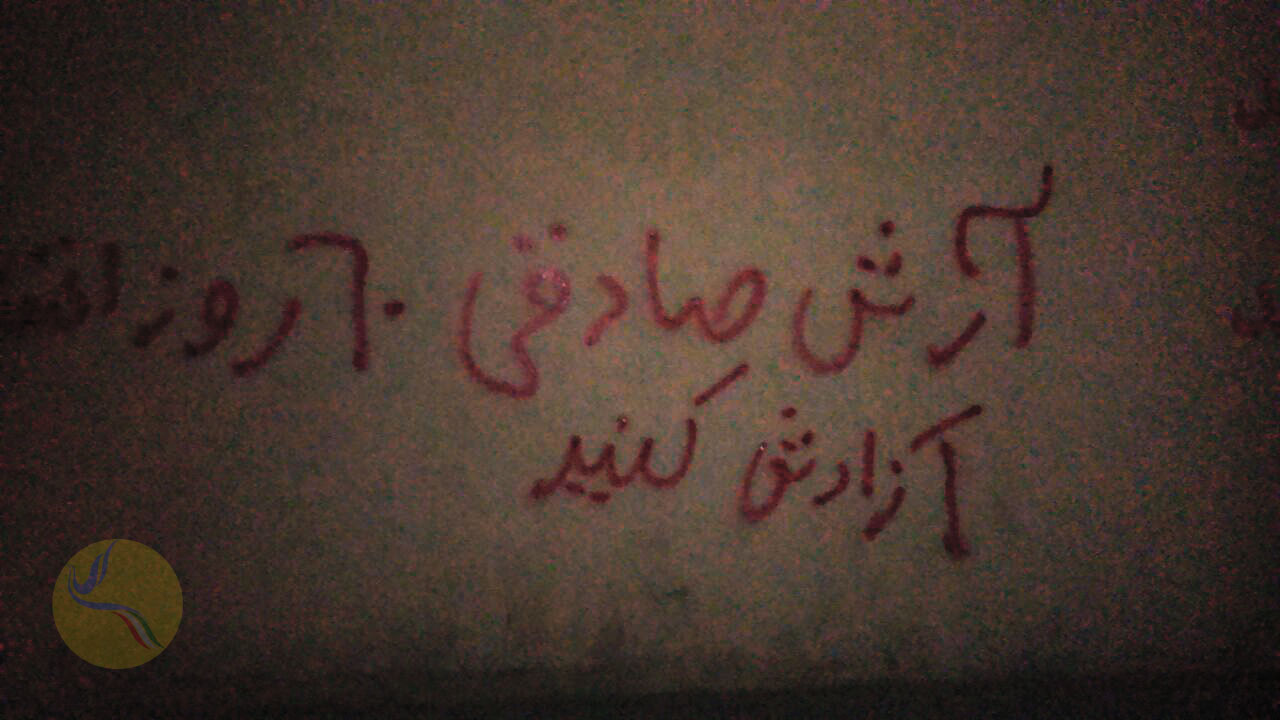 آرش صادقی ۶۰ روز
آزادش کنید